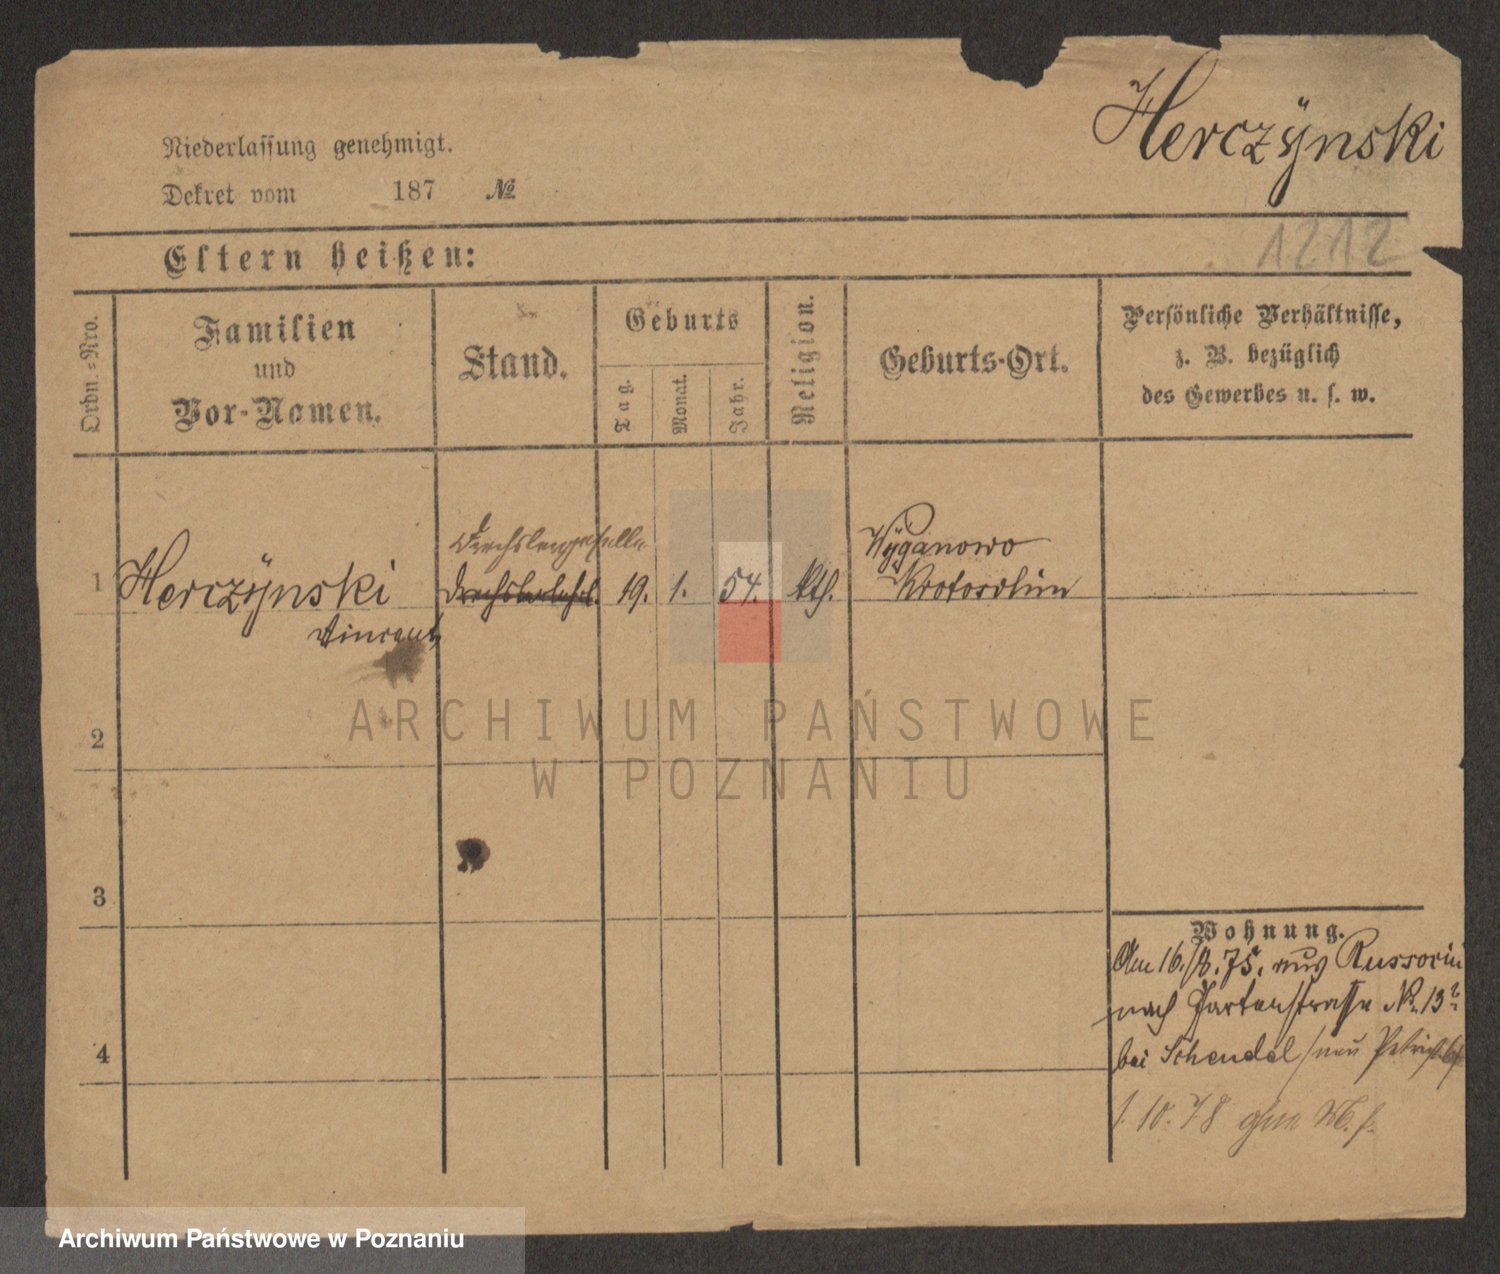 Herczÿnski
Niederlassung genehmigt.
Dekret vom 187 №
1212
Eltern heißen:
Ordn.=Nro.
Familien
und
Vor-Namen.
Stand.
Geburts
Tag.
Monat.
Jahr.
Religion.
Geburts-Ort.
Persönliche Verhältnisse,
z. B. bezüglich
des Gewerbes u. s. w.
Drechslergeselle
Wÿganowo
1 Herczÿnski 19. 1. 54. kth. Krotoschin
Vincent
2
3
4
Wohnung.
Am 16./8.75. aus Russocin
nach Gartenstrasse No. 13
bei Schendel
1.10.78
ARCHIWUM PAŃSTWOWE
W POZNANIU
Archiwum Państwowe w Poznaniu